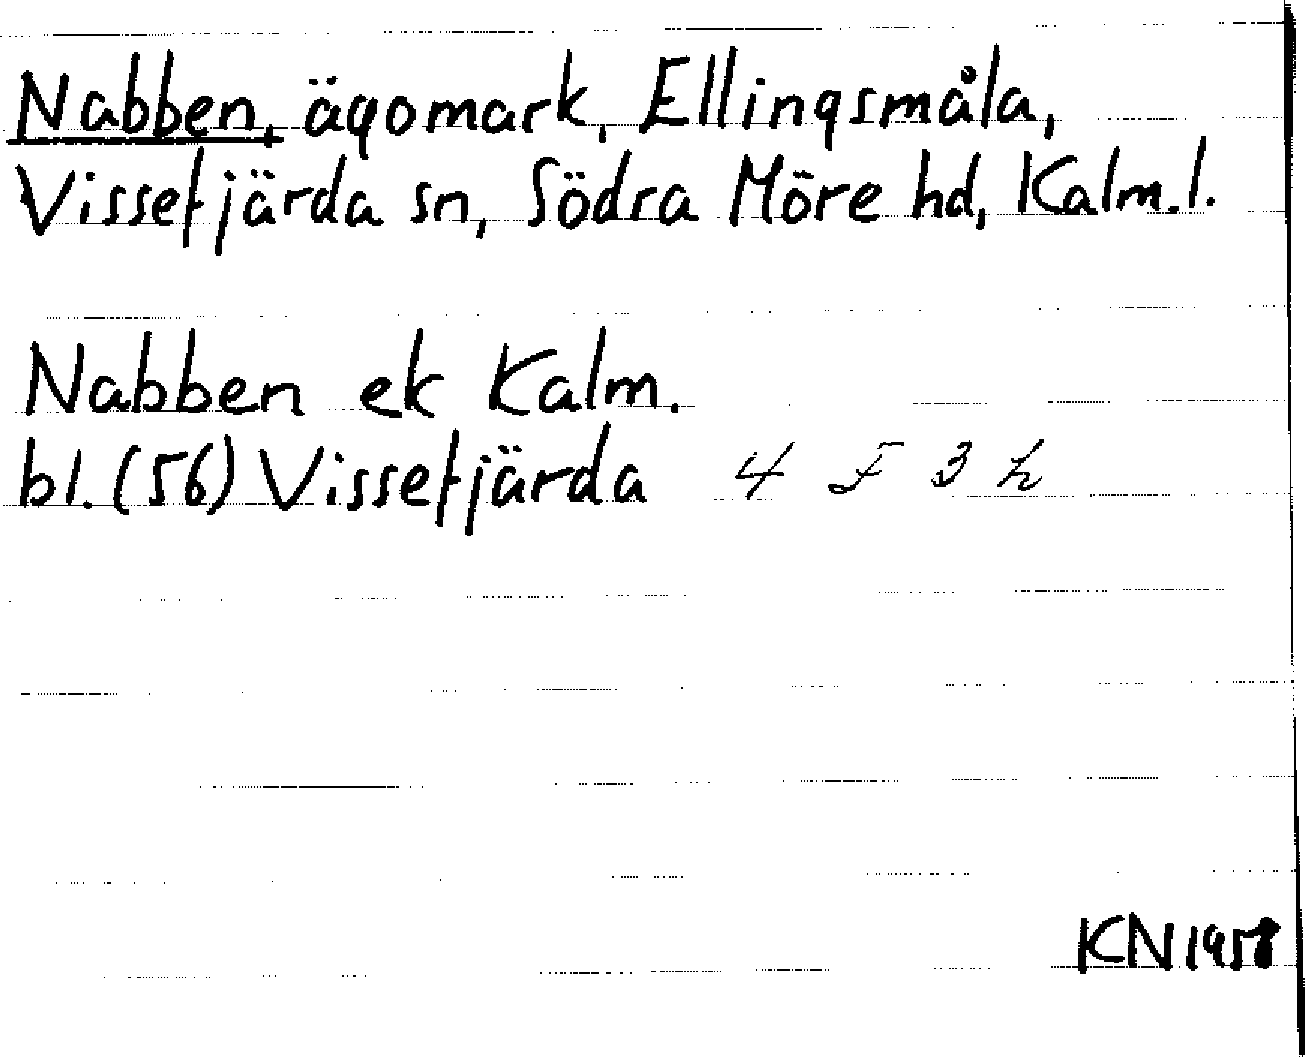 Nabben, ägomark, Ellingsmåla,
Vissefjärda sn, Södra Möre hd, Kalm.l.
Nabben ek Kalm.
bl. (56) Vissefjärda 4 F 3 h
KN 1958